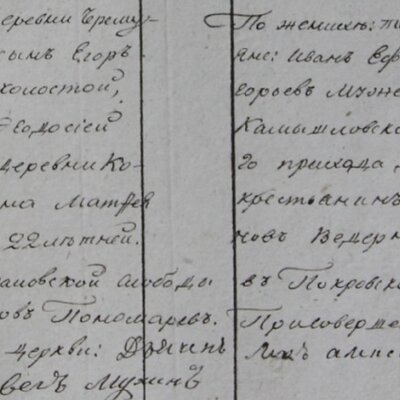 деревни Черему-
сынъ Егоръ
холостой,
Ѳеодосіей
деревни Ко-
на Матвев
22 лѣтней.
ловской слободы
овъ Пономаревъ.
церкви: Дьячекъ
велъ Мухинъ
По женихѣ:
яне: Иванъ Еф
горьевъ
Камышловска
го прихода
крестьянинъ
новъ Ведерн
въ Покровско
При